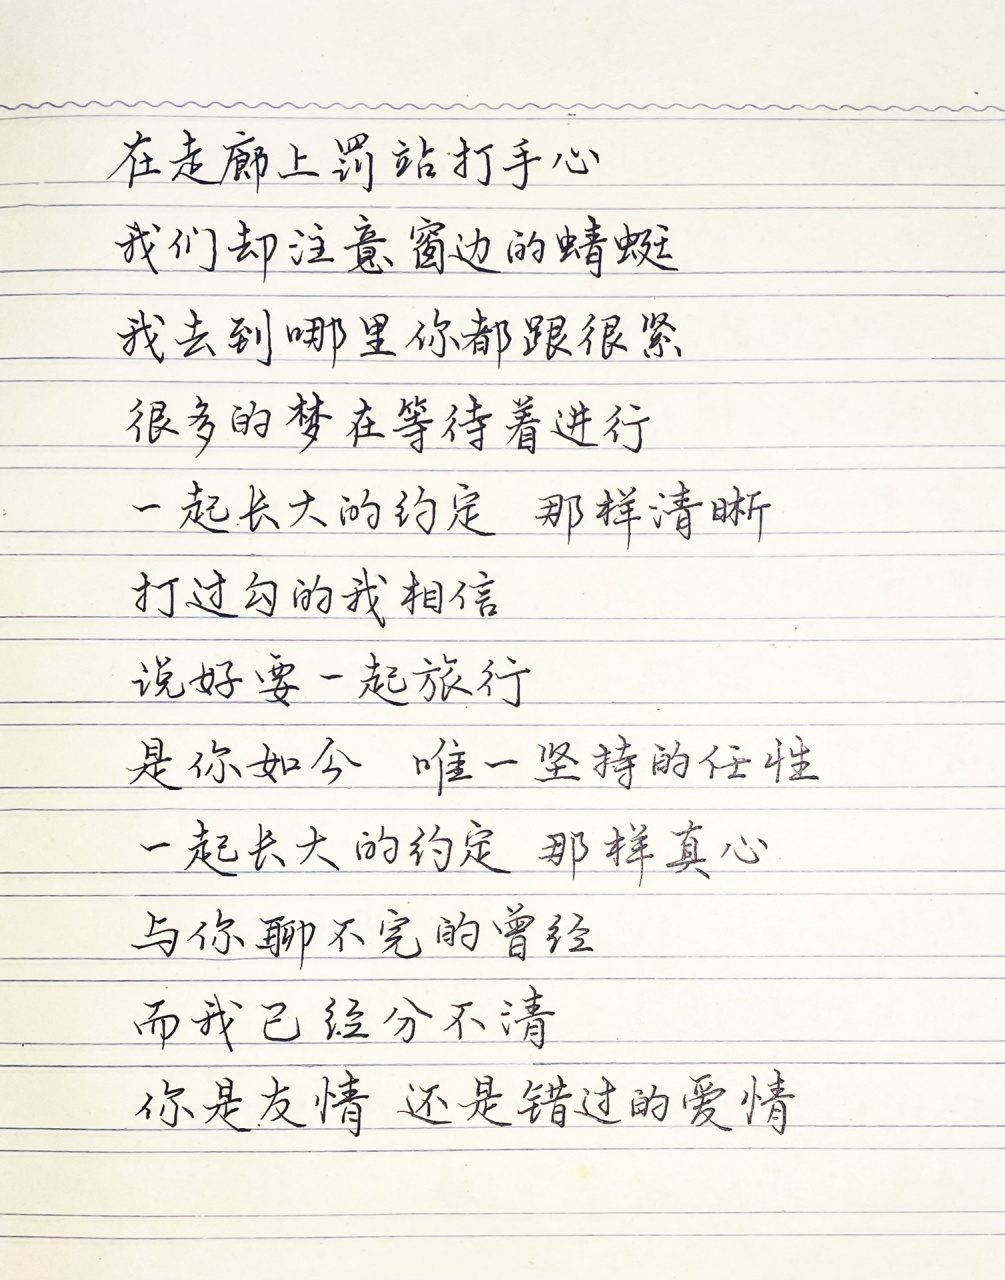 在走廊上罚站打手心
我们却注意窗边的蜻蜓
我去到哪里你都跟很紧
很多的梦在等待着进行
一起长大的约定 那样清晰
打过勾的我相信
说好要一起旅行
是你如今 唯一坚持的任性
一起长大的约定 那样真心
与你聊不完的曾经
而我已经分不清
你是友情 还是错过的爱情